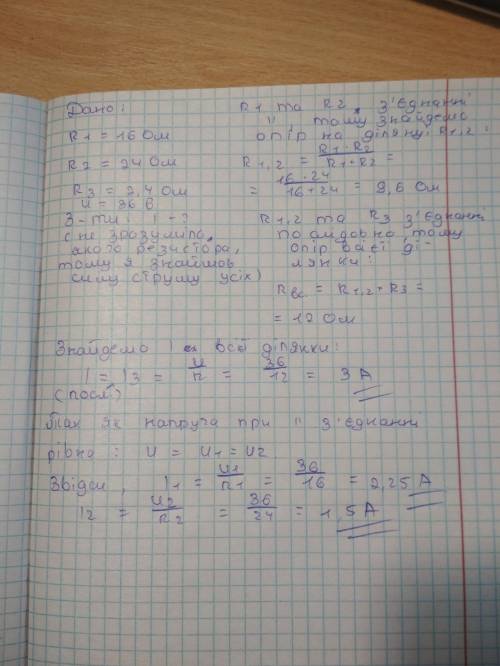 Дано:
R1 = 16 Ом
R2 = 24 Ом
R3 = 2,4 Ом
U = 36 В
З-ти: I - ?
(не зрозуміло, якого резистора,
тому я знайшов
силу струму усіх)
R1 та R2 з'єднанні
" тому знайдемо
опір на ділянці R1,2:
R1,2 = R1 · R2 / R1 + R2 =
= 16 · 24 / 16 + 24 = 9,6 Ом
R1,2 та R3 з'єднанні
послідовно, тому
опір всієї ді-
лянки:
Rвс = R1,2 + R3 =
= 12 Ом
Знайдемо I всієї ділянки:
I = I3 = U / R = 36 / 12 = 3 А
(посл.)
Так як напруга при " з'єднанні
рівна: U = U1 = U2
Звідси, I1 = U1 / R1 = 36 / 16 = 2,25 А
I2 = U2 / R2 = 36 / 24 = 1,5 А